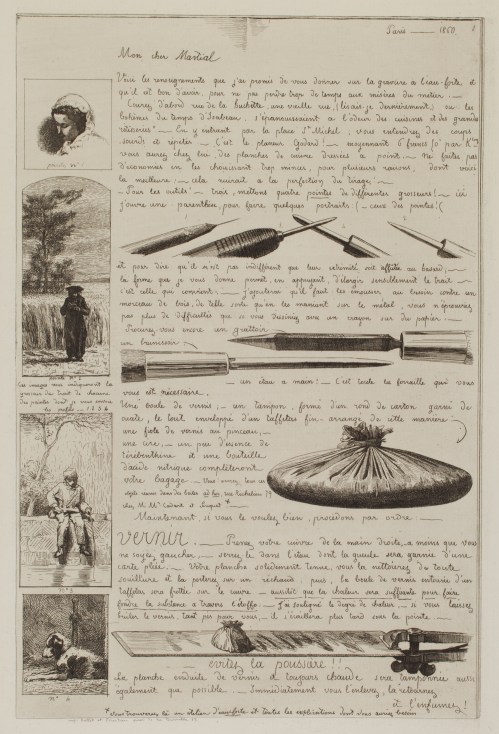 Paris — 1860
Mon cher Martial
Voici les renseignements que j'ai promis de vous donner sur la gravure à l'eau-forte et
qu'il est bon d'avoir, pour ne pas perdre trop de temps aux misères du métier. —
Courez d'abord rue de la huchette, une vieille rue, (lisais-je dernièrement) où les
bohèmes du temps d'Isabeau, s'épanouissaient à l'odeur des cuisines et des grandes
rôtisseries! — En y entrant par la place St Michel, vous entendrez des coups
sourds et répétés — C'est le planeur Godard! — moyennant 6 francs 50 par K
vous aurez chez lui, des planches de cuivre dressées à point. — Ne faites pas
d'économies en les choisissant trop minces, pour plusieurs raisons, dont voici
la meilleure: cela nuirait à la perfection du tirage. —
— Pour les outils! — trois, mettons quatre pointes de différentes grosseurs! — ici
j'ouvre une parenthèse pour faire quelques portraits (— ceux des pointes!(
et pour dire qu'il n'est pas indifférent que leur extrémité soit affûtée au hasard; —
la forme que je vous donne permet, en appuyant, d'élargir sensiblement le trait —
c'est celle qui convient. — J'ajouterai qu'il faut les émousser au besoin contre un
morceau de bois, de telle sorte qu'en les maniant sur le métal, vous n'éprouviez
pas plus de difficultés que si vous dessiniez avec un crayon sur du papier —
Procurez-vous encore un grattoir
un brunissoir
— un étau à main! — C'est toute la ferraille qui vous
vous est nécessaire.
Une boule de vernis; — un tampon, formé d'un rond de carton garni de
ouate, le tout enveloppé d'un taffetas fin arrangé de cette manière:
une fiole de vernis au pinceau, —
une cire, — un peu d'essence de
térébenthine et une bouteille
d'acide nitrique compléteront
votre bagage —
rue Richelieu 79
chez MM Cadart et Luquet *
Maintenant, si vous le voulez bien, procédons par ordre: —
VERNIR. — Prenez votre cuivre de la main droite, à moins que vous
ne soyez gaucher, — serrez le dans l'étau dont la gueule sera garnie d'une
carte pliée. — Votre planche solidement tenue, vous la nettoierez de toute
souillure et la porterez sur un réchaud, puis, la boule de vernis entourée d'un
taffetas sera frottée sur le cuivre — aussitôt que la chaleur sera suffisante pour faire
fondre la substance à travers l'étoffe. — J'ai souligné le degré de chaleur, — si vous laissez
brûler le vernis, tant pis pour vous — il s'écaillera plus tard sous la pointe —
— évitez la poussière!! —
La planche enduite de vernis et toujours chaude sera tamponnée aussi
également que possible. — Immédiatement vous l'enlevez, la retournez
et l'enfumez!
* vous trouverez là un atelier d'eau-forte et toutes les explications dont vous aurez besoin
Ces images vous indiqueront la
1854
N° 3
N° 4